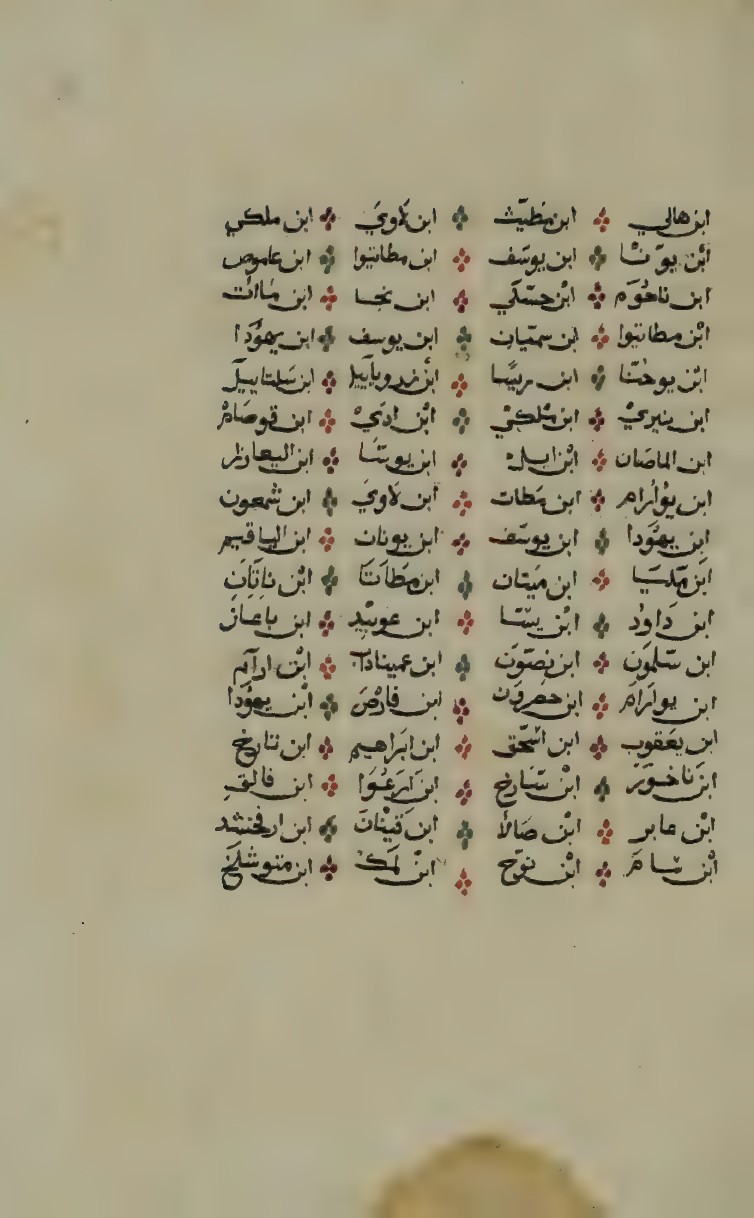 ابن هالي ابن مطيّث ابن لَاويَ ابن ملكي
ابن يوّنّا ابن يوسّف ابن مطاتيوا ابن عاموص
ابن ناحُوم ابن حسّلي ابن نجا ابن مااث
ابْن مطاتيوا ابن سمتيان ابن يوسف ابن يهوُدَا
ابْن يوحَنّا ابن ريسّا ابن زروبابيل ابن سَلتاييل
ابن ينيريْ ابن مْلكيْ ابْن اديْ ابن قوصَامْ
ابن الماصان ابْن ايل ابن يوسَا ابن اليعازار
ابن يوُارام ابن مَطات ابن لَاويَ ابن شمعون
ابن يهوُدَا ابن يوسّف ابن يونان ابن الياقيم
ابن مَلسيَا ابن ميَنان ابن مطَاتَا ابْن ناتَان
ابن دَاوُد ابْن يسّا ابن عوبيّد ابن باعاز
ابن سّلمون ابن نصّون ابن عميناداب ابْن ارام
ابن يواَرامَ ابن حصرون ابن فارْصَ ابْن يهوُدَا
ابن يعَقوب ابن اسّحق ابن ابراهيم ابن تارخ
ابن ناخور ابْن سّارخ ابن ارَعُوَا ابن فالق
ابْن عابر ابْن صَالاْ ابن قينان ابن ارفخشد
ابْن سام ابْن نوّح ابْن لمَك ابن متوشلَخ